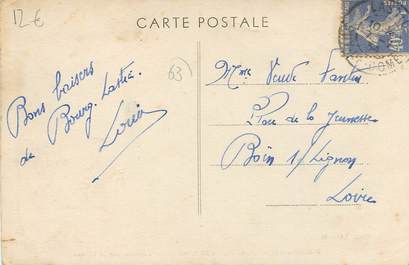 12 €
CARTE POSTALE
40c
63
Bons baisers
de Bourg-Lastic.
Mme Veuve
Place de la Jeunesse
Boën s/ Lignon
Loire